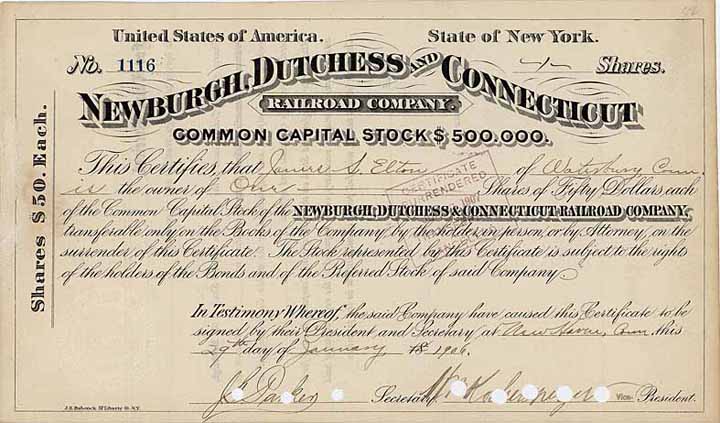 United States of America. State of New York.
No. 1116 -1- Shares.
NEWBURGH, DUTCHESS AND CONNECTICUT
RAILROAD COMPANY.
COMMON CAPITAL STOCK $500.000.
Shares $50. Each.
This Certifies, that James S. Elton of Waterbury Conn
is the owner of One Shares of Fifty Dollars each
of the Common Capital Stock of the NEWBURGH, DUTCHESS & CONNECTICUT RAILROAD COMPANY,
transferable only on the Books of the Company by the holder in person, or by Attorney, on the
surrender of this Certificate. The Stock represented by this Certificate is subject to the rights
of the holders of the Bonds and of the Preferred Stock of said Company.
CERTIFICATE
SURRENDERED
1907
In Testimony Whereof, the said Company have caused this Certificate to be
signed by their President and Secretary at New Haven, Conn. this
29th day of January 1906.
Secretary Vice- President.
J.R. Babcock, 57 Liberty St. N.Y.